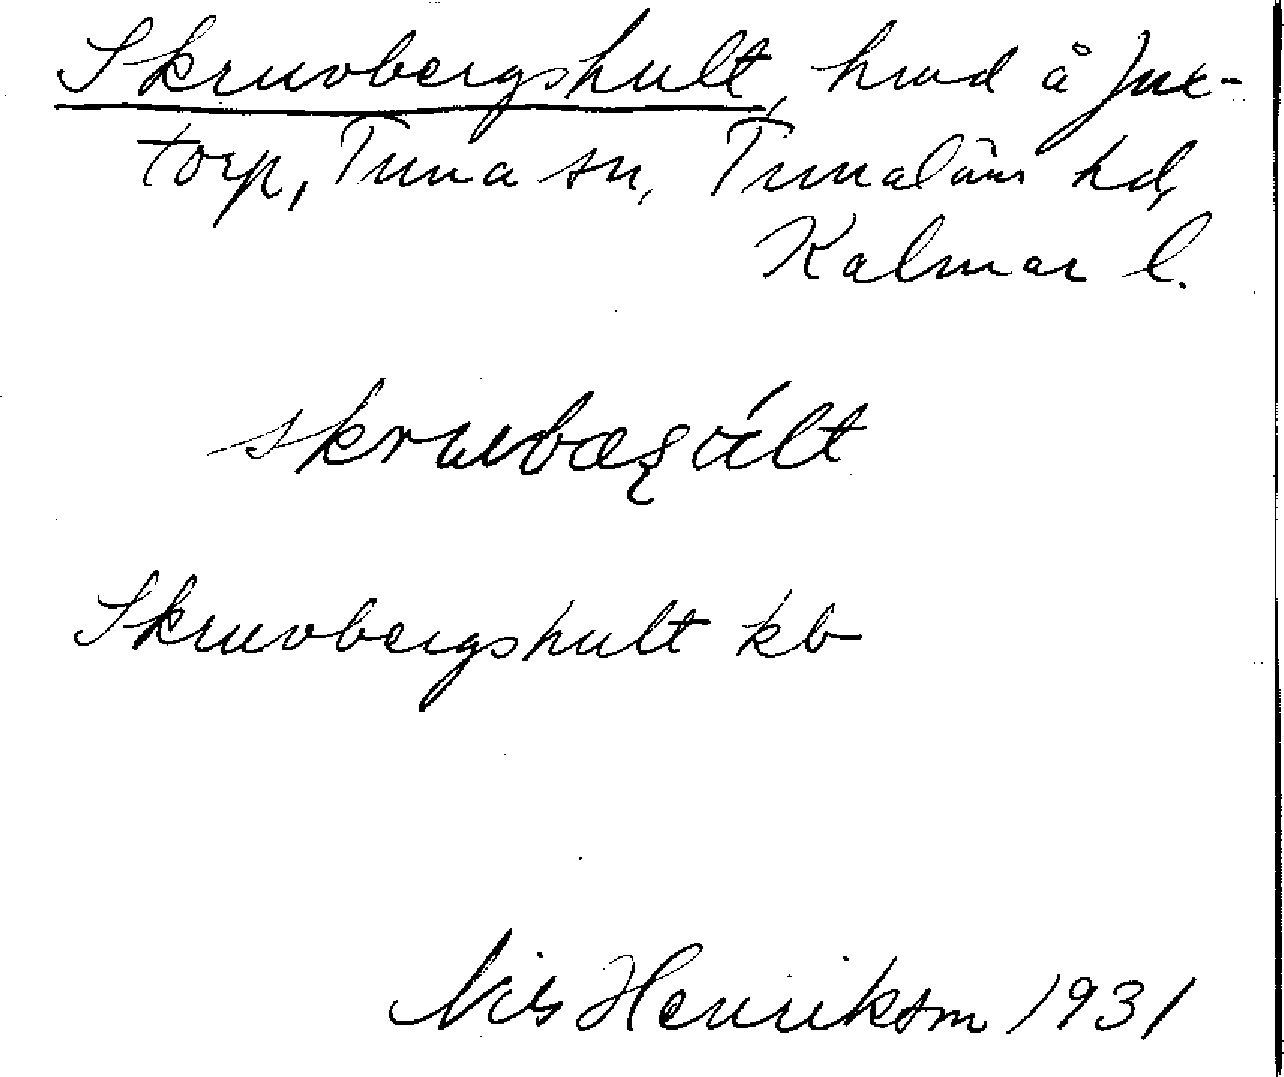 Skruvbergshult, hmd å Jux-
torp, Tuna sn, Tunaläns hd,
Kalmar l.
Skruvbergshult kb
Nils Henrikson 1931